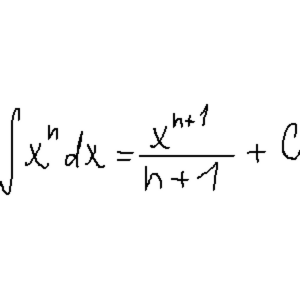 ∫ x^n dx = x^{n+1} / n+1 + C